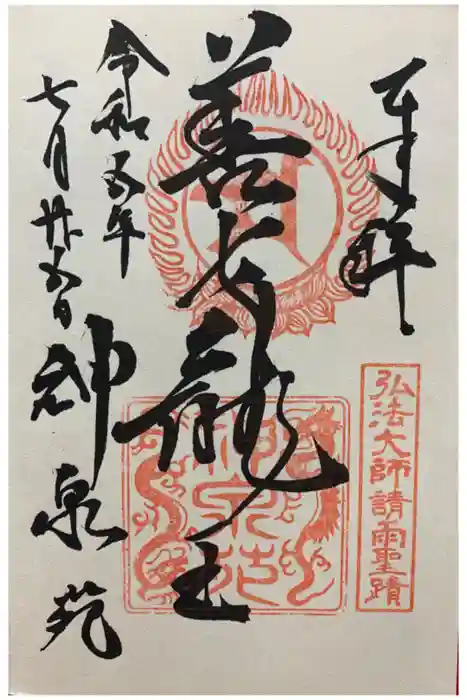 奉拝
弘法大師請雨聖蹟
善女龍王
神泉苑
令和五年
七月廿五日
神泉苑